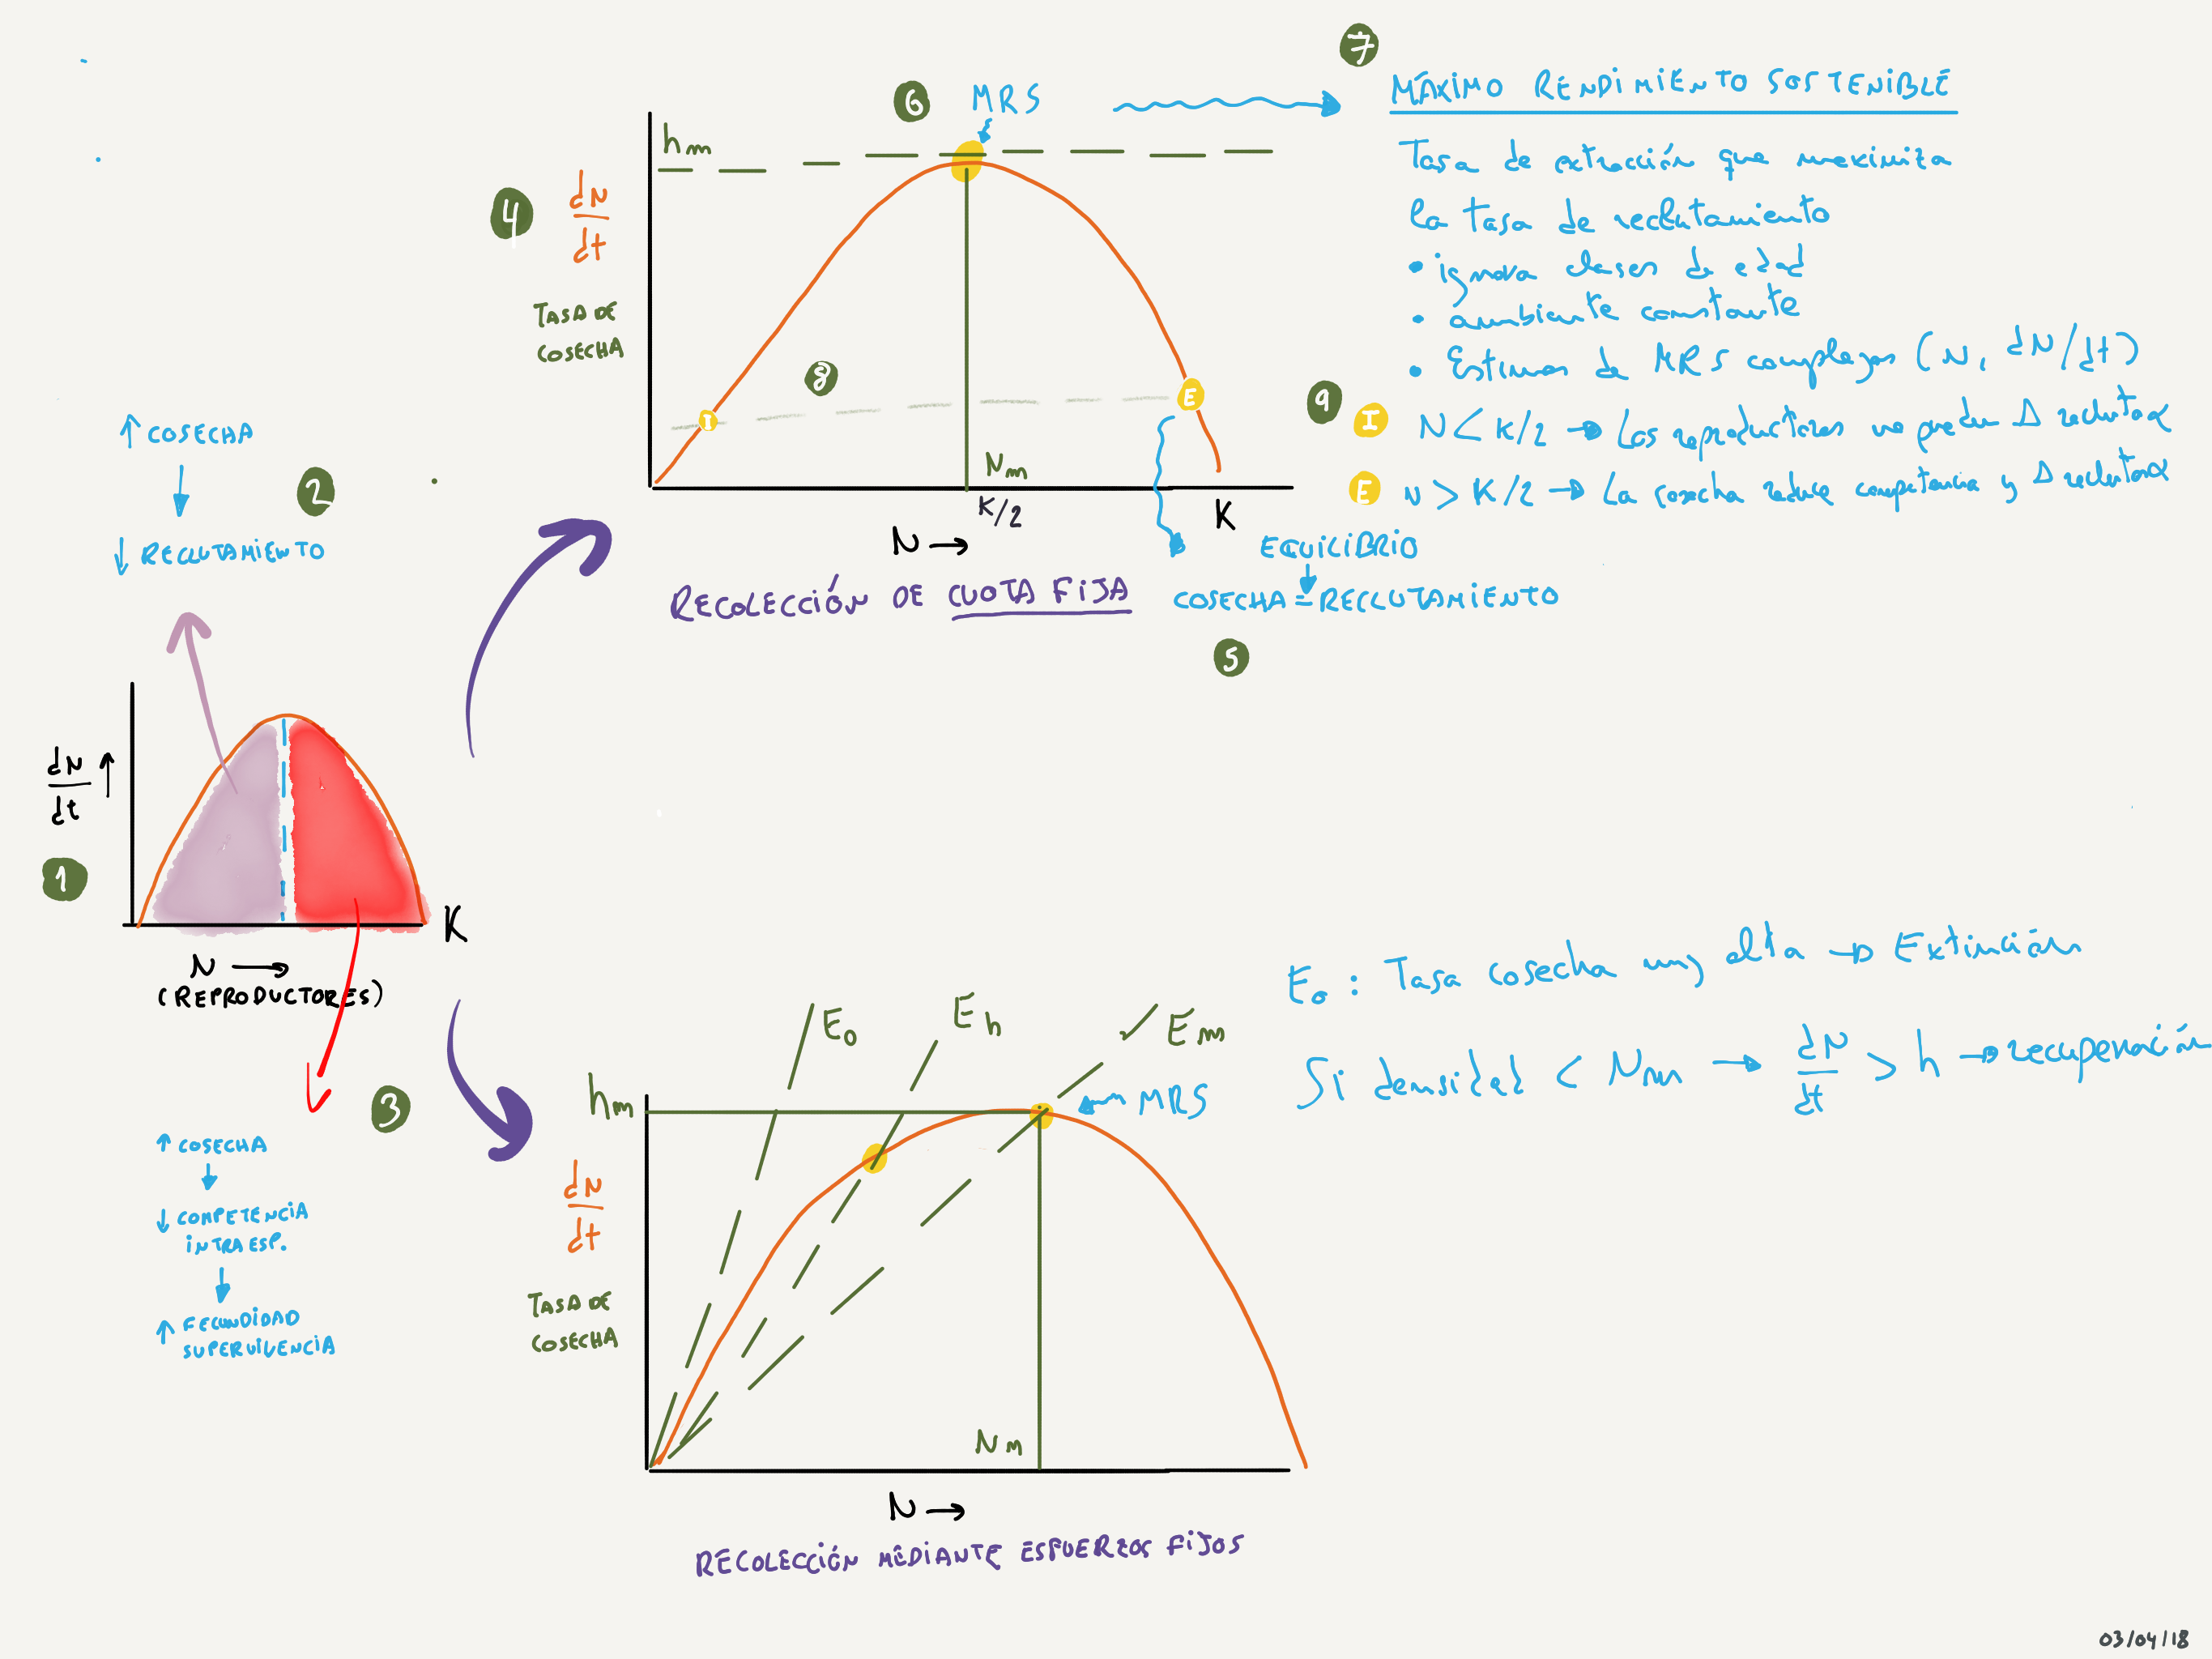 1
dN/dt ↑
K
N →
(REPRODUCTORES)
2
↑ COSECHA
↓
↓ RECLUTAMIENTO
3
↑ COSECHA
↓
↓ COMPETENCIA
INTRAESP.
↓
↑ FECUNDIDAD
SUPERVIVENCIA
4
dN/dt
TASA DE
COSECHA
hm
6
MRS
8
I
E
Nm
K/2
K
N →
RECOLECCIÓN DE CUOTA FIJA
EQUILIBRIO
↓
COSECHA = RECLUTAMIENTO
5
7
MÁXIMO RENDIMIENTO SOSTENIBLE
Tasa de extracción que maximiza
la tasa de reclutamiento
• ignora clases de edad
• ambiente constante
• Estimas de MRS complejas (N, dN/dt)
9
I N < K/2 → Los reproductores no pueden Δ reclutar
E N > K/2 → La cosecha reduce competencia y Δ reclutar
hm
dN/dt
TASA DE
COSECHA
E0
Eh
Em
← MRS
Nm
N →
RECOLECCIÓN MEDIANTE ESFUERZOS FIJOS
E0 : Tasa cosecha muy alta → Extinción
Si densidad < Nm → dN/dt > h → recuperación
03/04/18